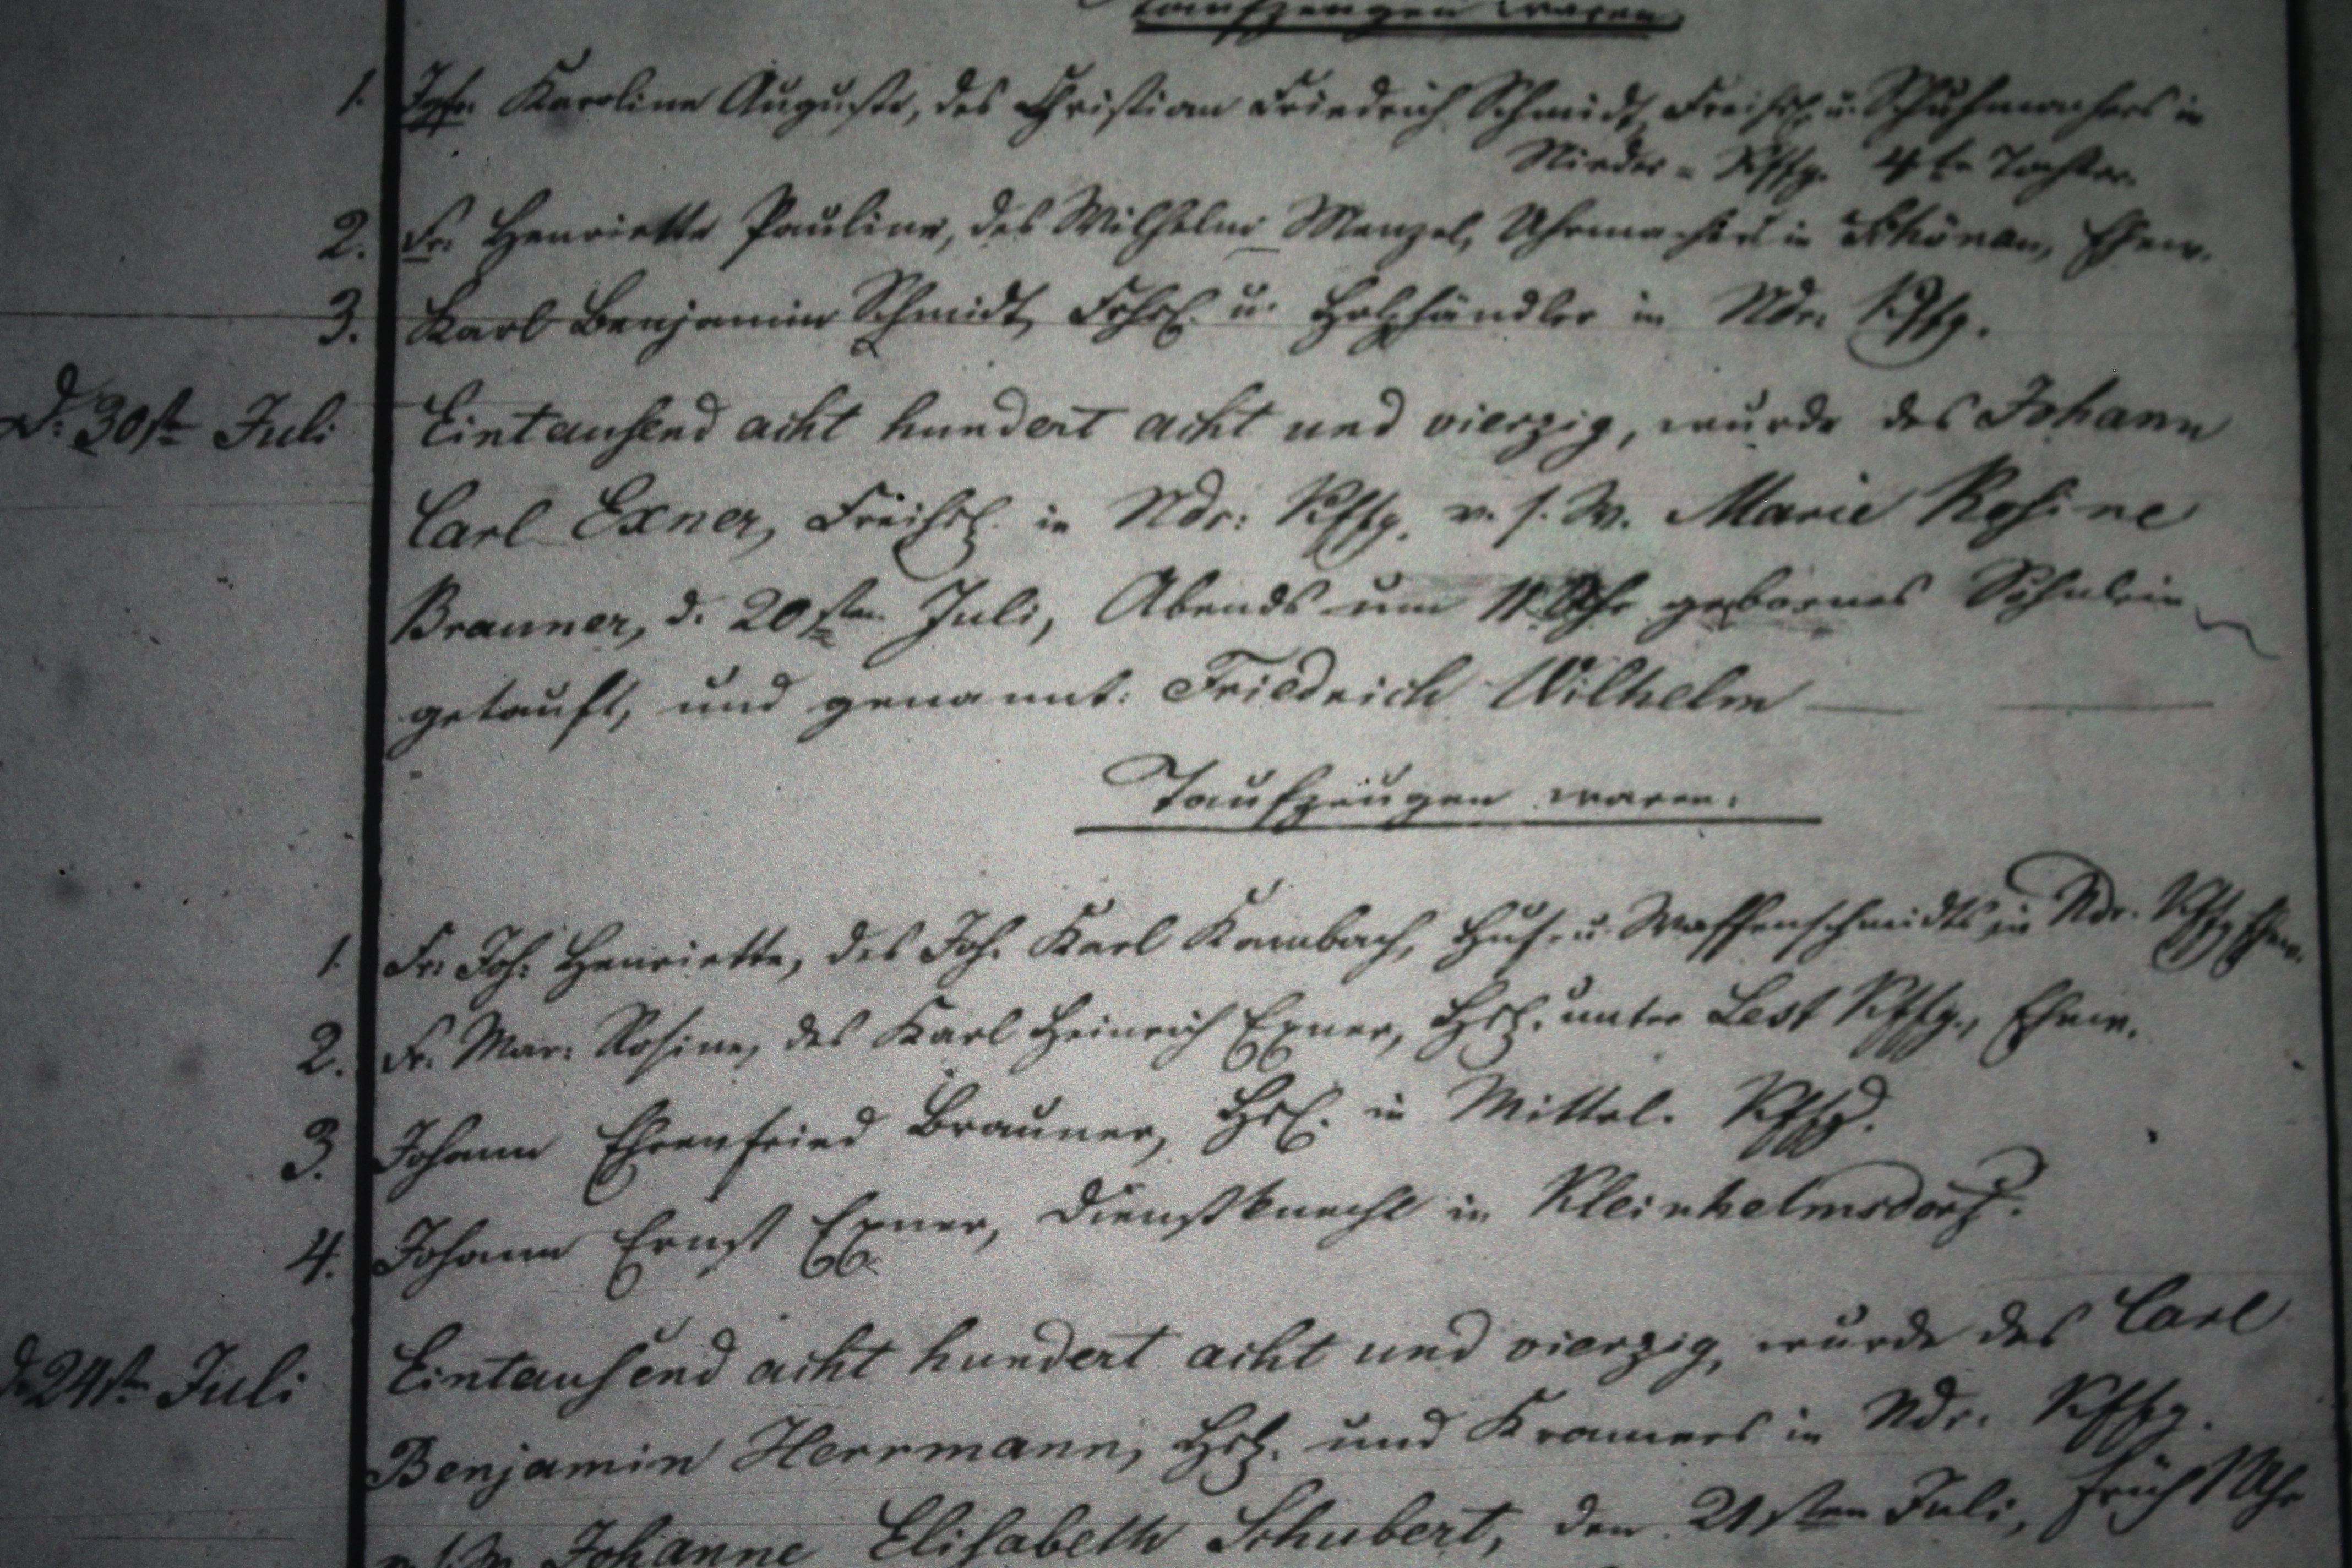 Taufzeugen waren:
1. Jgfr. Karoline Auguste, des Christian Friedrich Schmidt, Freihsl. u. Schuhmachers in
Nieder = Kffg. 4te Tochter.
2. Fr. Henriette Pauline, des Wilhelm Menzel, Uhrmachers in Schönau, Ehew.
3. Karl Benjamin Schmidt, Frhsl. u. Holzhändler in Ndr. Kffg.
D. 30st Juli Eintausend acht hundert acht und vierzig, wurde des Johann
Carl Exner, Freihsl. in Ndr: Kffg. v. s. W. Marie Rosine
Brauner, d. 20sten Juli, Abends um 11 Uhr gebornes Söhnlein
getauft, und genannt: Friedrich Wilhelm
Taufzeugen waren:
1. Fr. Joh: Henriette, des Joh. Karl Kambach, Huf- u. Waffenschmidts in Ndr. Kffg. Ehew.
2. Fr. Mar: Rosine, des Karl Heinrich Exner, Hsl. unter Lest Kffg., Ehew.
3. Johann Ehrenfried Brauner, Hsl. in Mittel. Kffg.
4. Johann Ernst Exner, Dienstknecht in Kleinhelmsdorf.
d. 24st Juli Eintausend acht hundert acht und vierzig, wurde des Carl
Benjamin Herrmann, Hsl. und Kramers in Ndr. Kffg.
v. s. W. Johanne Elisabeth Schubert, den 21sten Juli, früh 1 Uhr